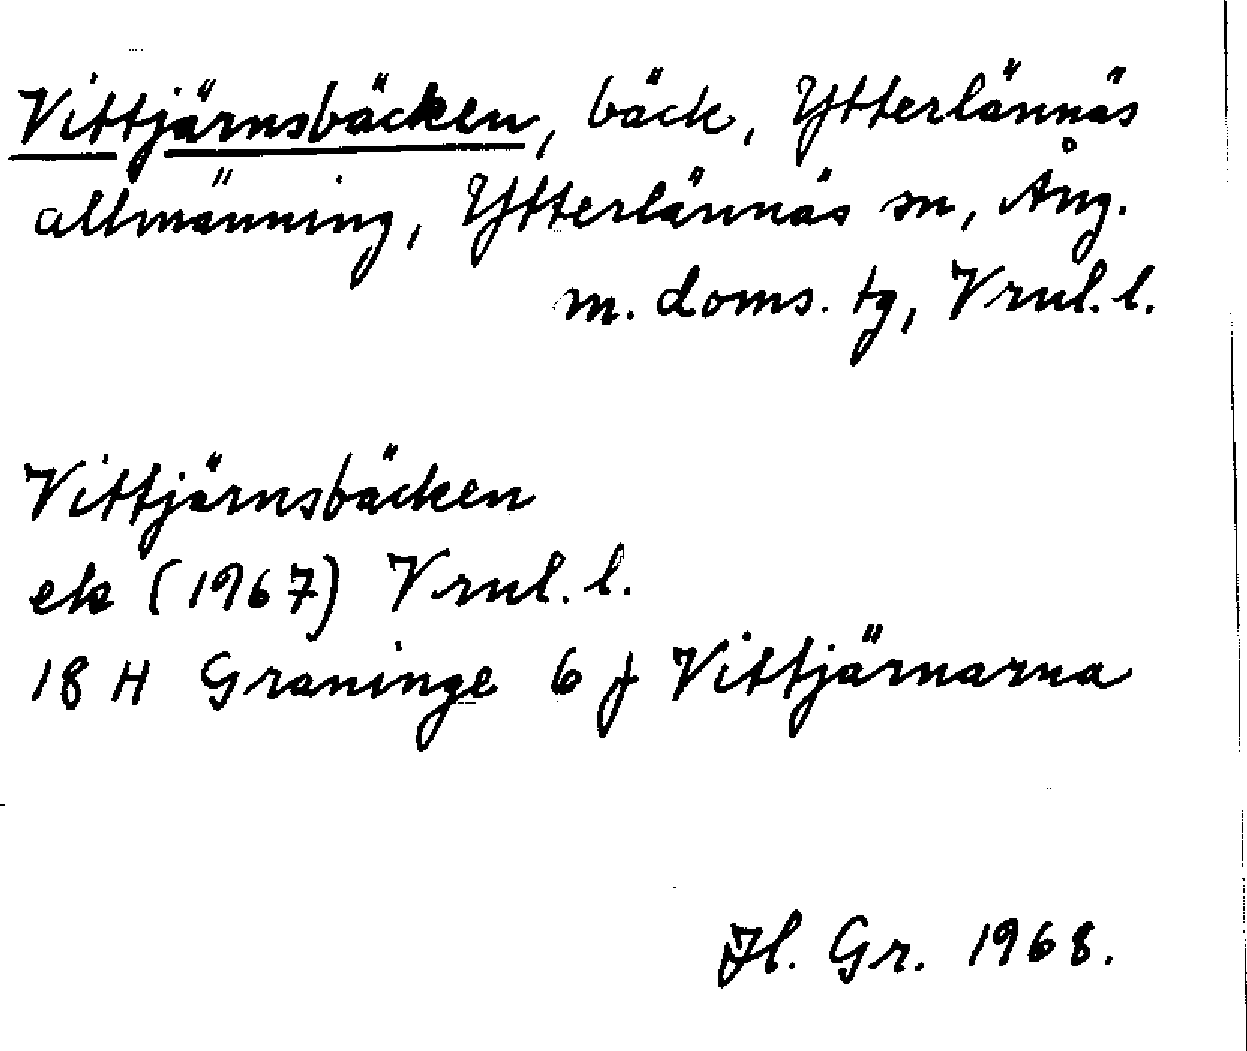 Vittjärnsbäcken, bäck, Ytterlännäs
allmänning, Ytterlännäs sn, Ång.
m. doms. tg, Vrnl. l.
Vittjärnsbäcken
ek (1967) Vrnl. l.
18 H Graninge 6 j Vittjärnarna
Hl. Gr. 1968.